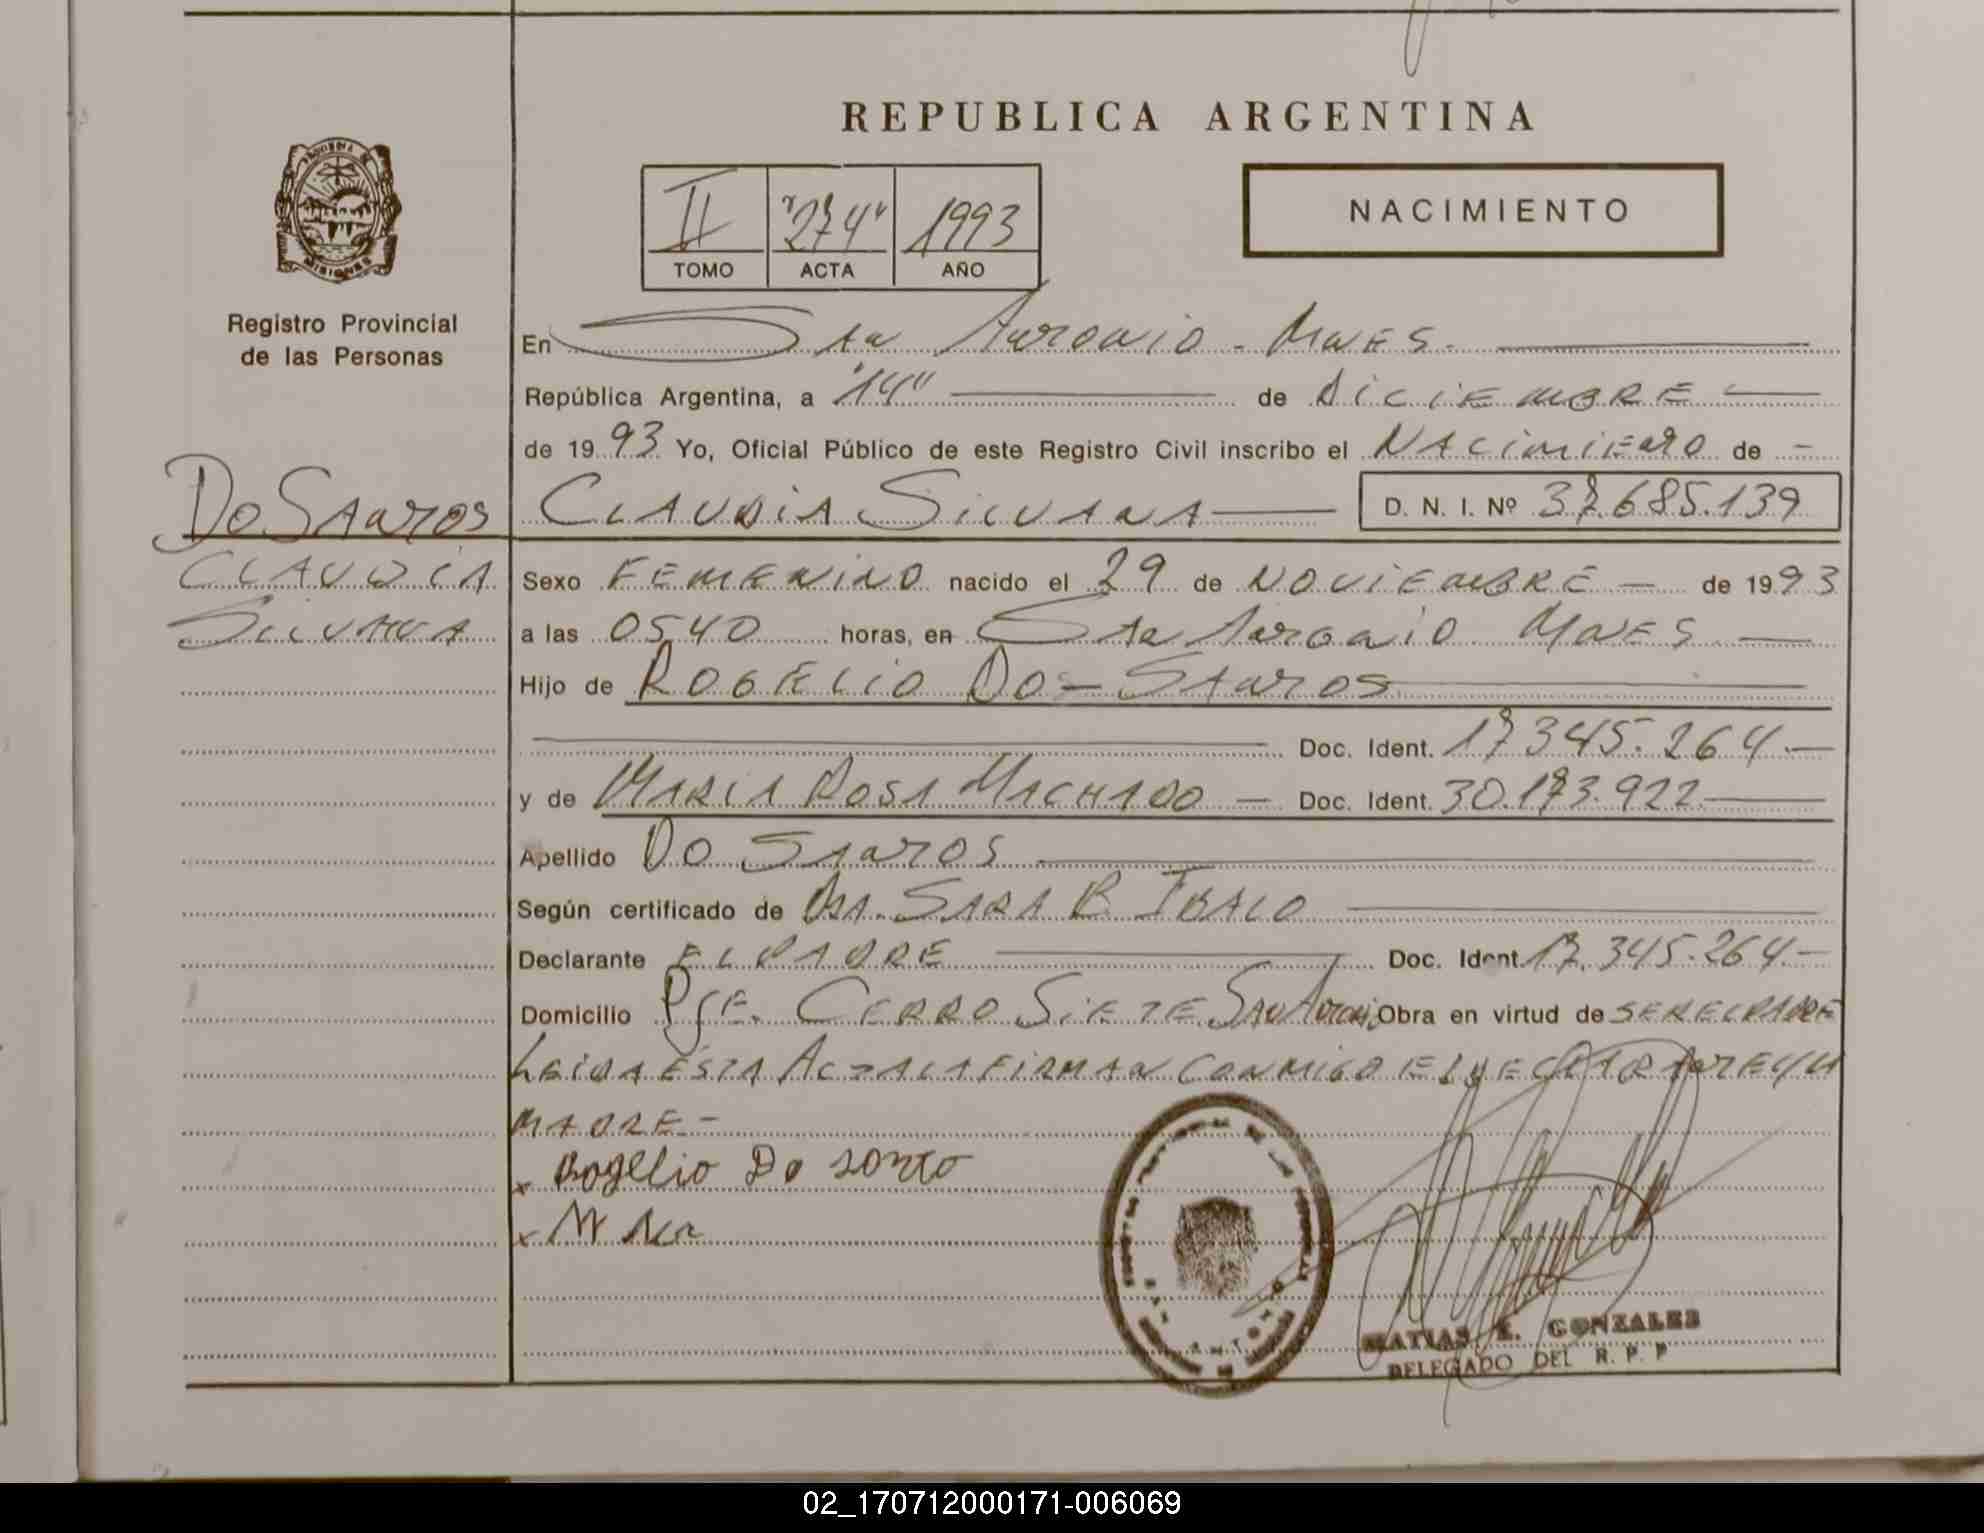 REPUBLICA ARGENTINA
PROVINCIA DE MISIONES
Registro Provincial
de las Personas
II "274" 1993
TOMO ACTA AÑO
NACIMIENTO
En San Antonio - Mnes.
República Argentina, a "14" de Diciembre
de 1993 Yo, Oficial Público de este Registro Civil inscribo el Nacimiento de
Do Santos
Claudia
Silvana
Claudia Silvana D. N. I. Nº 37.685.139
Sexo Femenino nacido el 29 de Noviembre de 1993
a las 05,40 horas, en San Antonio Mnes
Hijo de Rogelio Do-Santos
Doc. Ident. 17345.264.-
y de Maria Rosa Machado Doc. Ident. 30.173.922
Apellido Do Santos
Según certificado de Dra. Sara B. Ibalo
Declarante El Padre Doc. Ident. 17.345.264.-
Domicilio Pje. Cerro Siete San Antonio Obra en virtud de ser el padre
Leida esta Acta la firman conmigo el declarante y la
Madre.-
x Rogelio Do santo
x
SAN ANTONIO
MATIAS E. GONZALES
DELEGADO DEL R. P. P
02_170712000171-006069